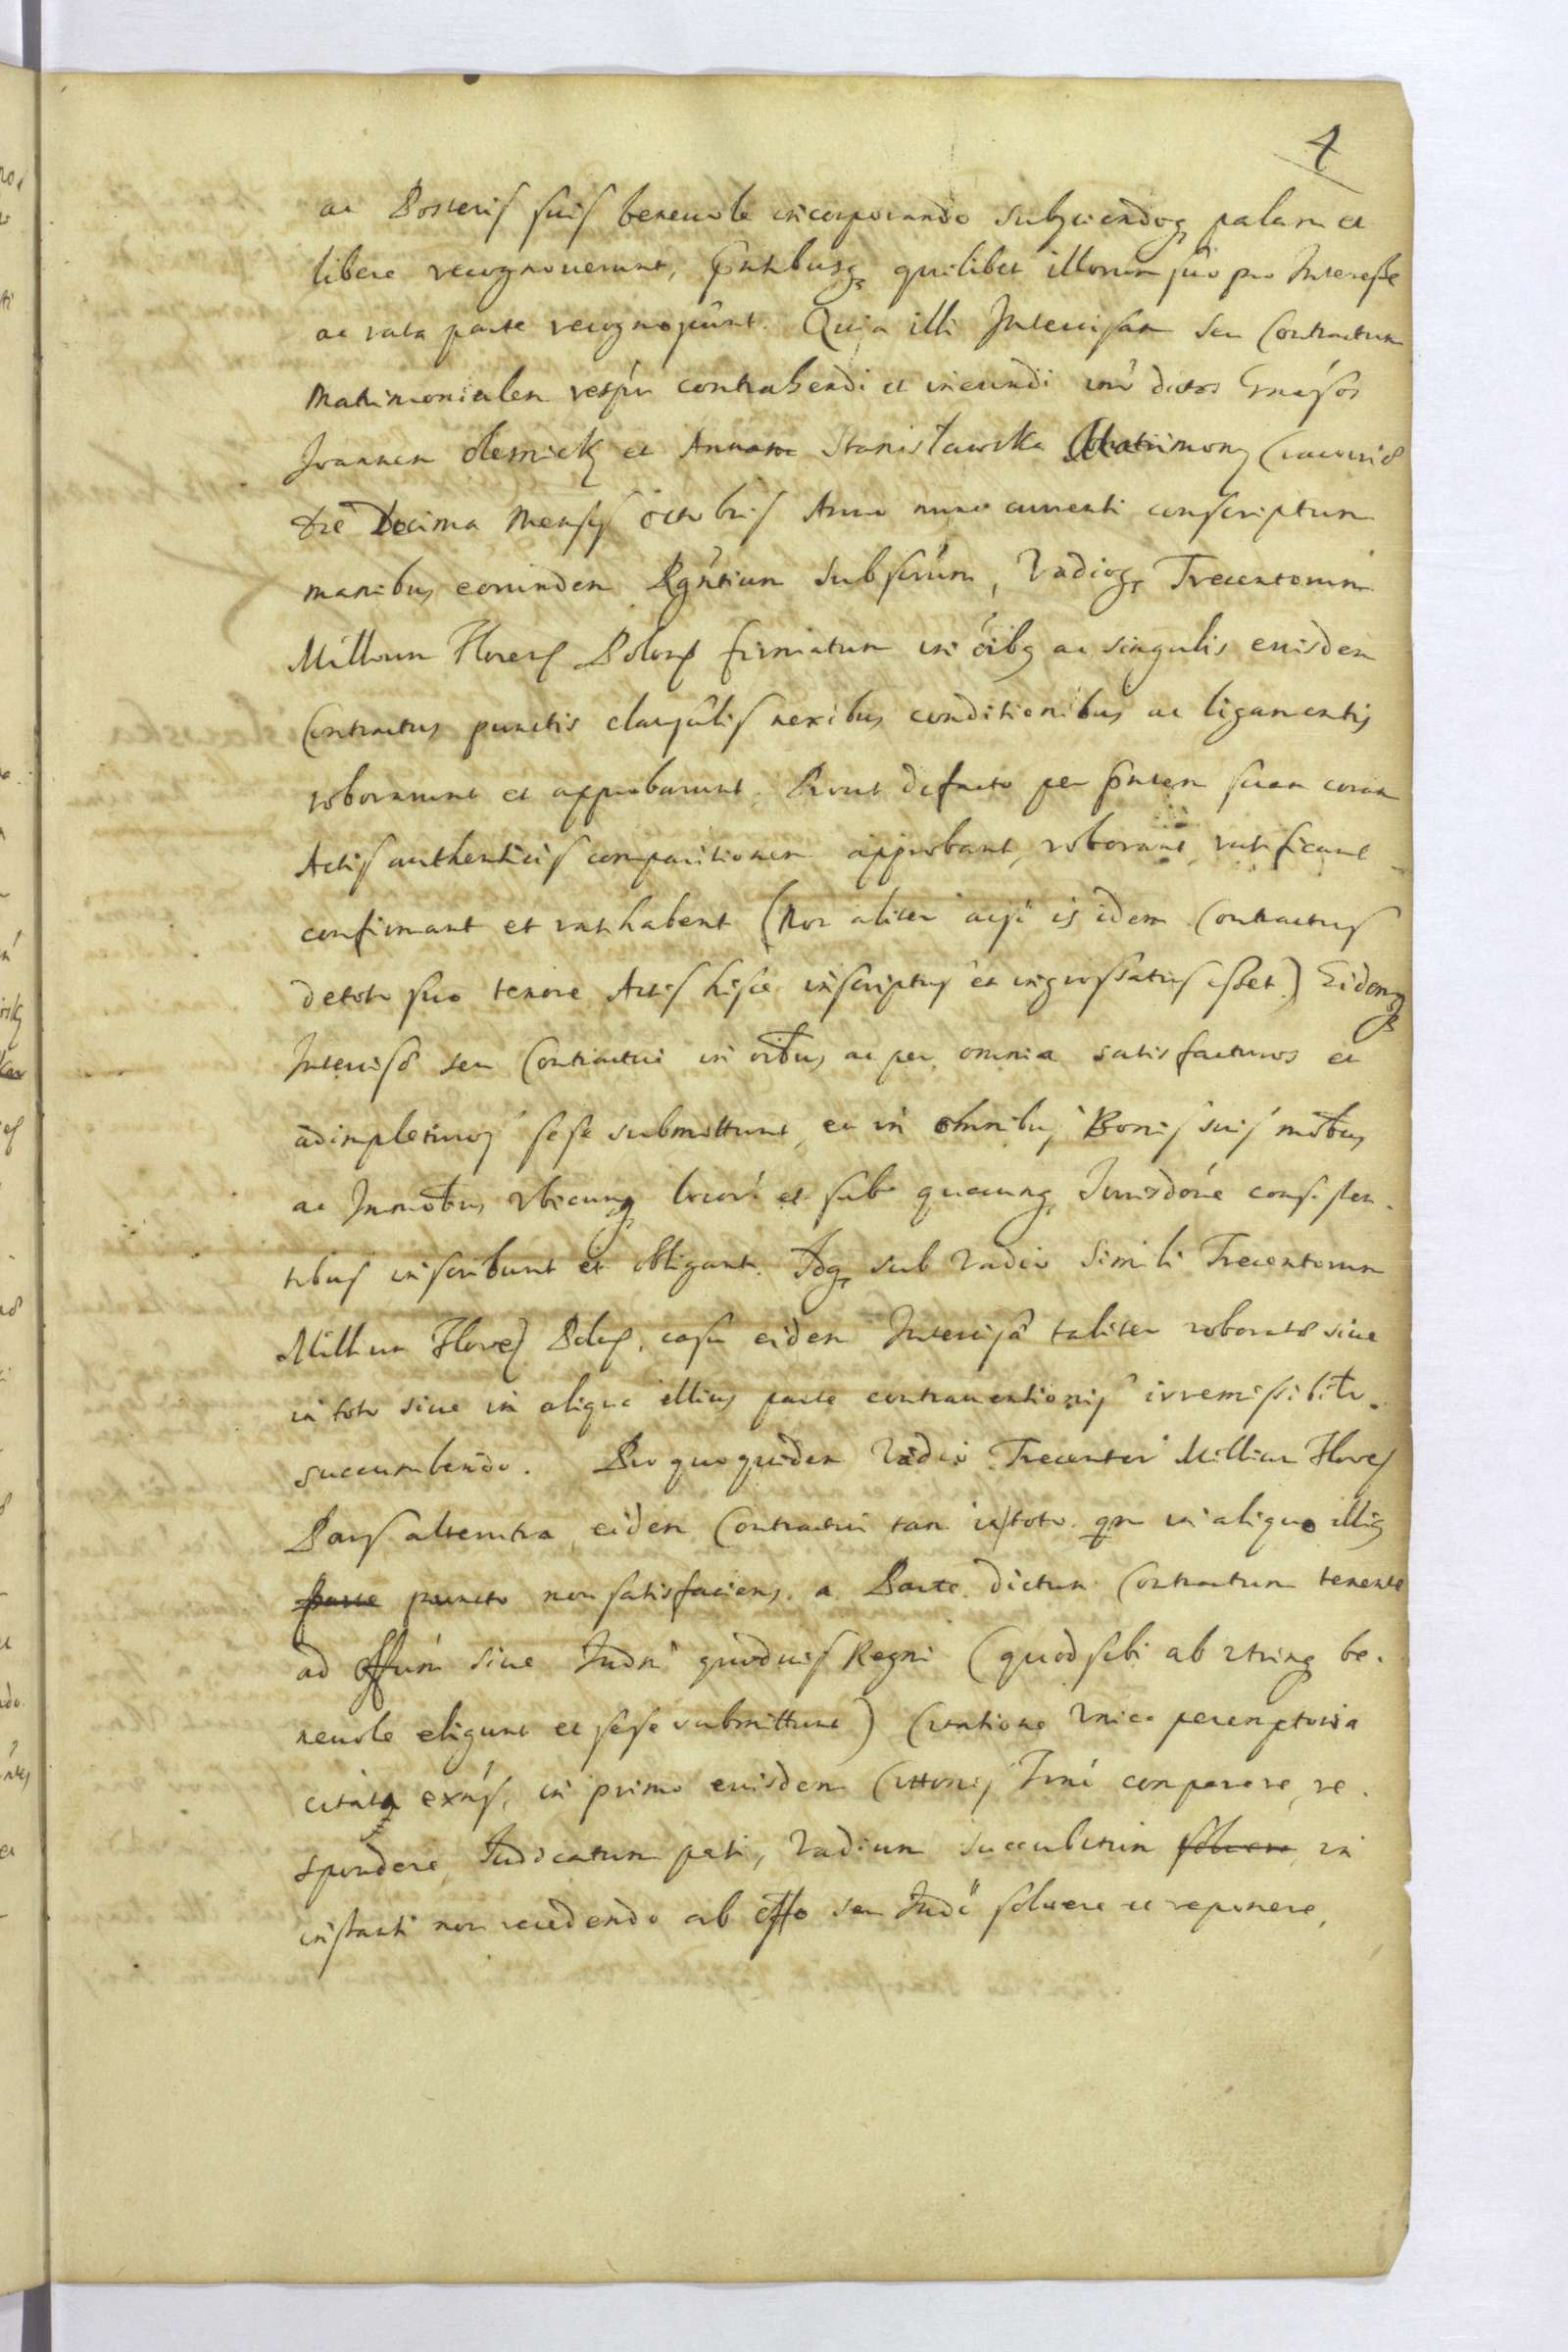 4
ac Posteris suis beneuole incorporando subÿciendoq₃ palam et
libere recognouerunt, p̃ntibusq₃ quilibet illorum suo pro Interesse
ac rata parte recognoscunt. Quia illi Intercisam seu Contractum
Matrimonialem resp̃u contrahendi et ineundi int̃ dictos Gnãsos
Joannem Olesnickÿ et Annam Stanisławska Matrimonÿ Cracouiæ
die Decima Mensis Octobris Anno nunc currenti conscriptum
manibus eorundem Rgñtium subscrũm, Vadioq₃ Trecentorum
Millium Floren Polon firmatum in õibq₃ ac singulis eiusdem
Contractus punctis clausulis nexibus conditionibus ac ligamentis
roborarunt et approbarunt. Prout de facto per p̃ntem suam coram
Actis authenticis comparitionem approbant, roborant, ratificant
confirmant et rathabent (Non aliter acsi is idem Contractus
de toto suo tenore Actis hisce inscriptus et ingrossatus esset) Eidemq₃
Intercisæ seu Contractui in oĩbus ac per omnia satisfacturos et
adimpleturos sese submittunt, et in omnibus Bonis suis mõbus
ac Immõbus vbicunq₃ locorũ et sub quacunq₃ Jurisdõne consisten.
tibus inscribunt et obligant. Idq₃ sub Vadio simili Trecentorum
Millium Floren Polon, casu eidem Intercisæ taliter roboratæ siue
in toto siue in aliqua illius parte contrauentionis irremissibilr̃
succumbendo. Pro quoquidem Vadio Trecentor̃ Millium Floren
Pars alterutra eidem Contractui tam in toto qm̃ in aliquo illiq₃
parte puncto non satisfaciens. a Parte dictum Contractum tenente
ad Offum̃ siue Judm̃ quoduis Regni (quod sibi ab vtrinq₃ be.
neuole eligunt et sese submittunt) Citatione Vnica peremptoria
citata exñs, in primo eiusdem Cittonis Trm̃i comparere, re.
spondere, Judicatum pati, Vadium succubitum soluere, in
instanti non recedendo ab offo seu Judo soluere et reponere,